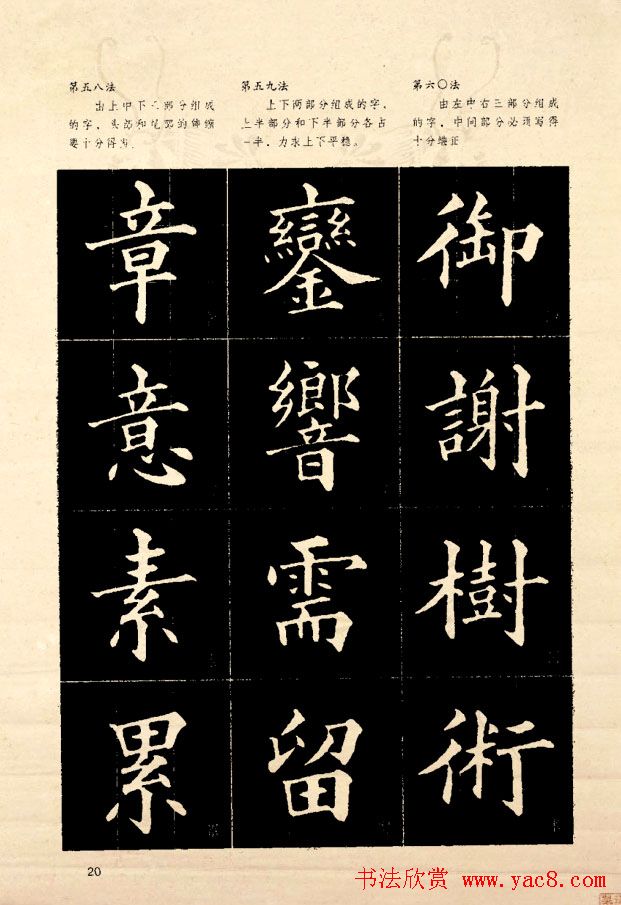 第五八法
由上中下三部分组成
的字，头部和尾部的伸缩
要十分得当。
第五九法
上下两部分组成的字，
上半部分和下半部分各占
一半，力求上下平稳。
第六〇法
由左中右三部分组成
的字，中间部分必须写得
十分端正
章
意
素
累
鑾
響
需
留
御
謝
樹
術
20
书法欣赏 www.yac8.com